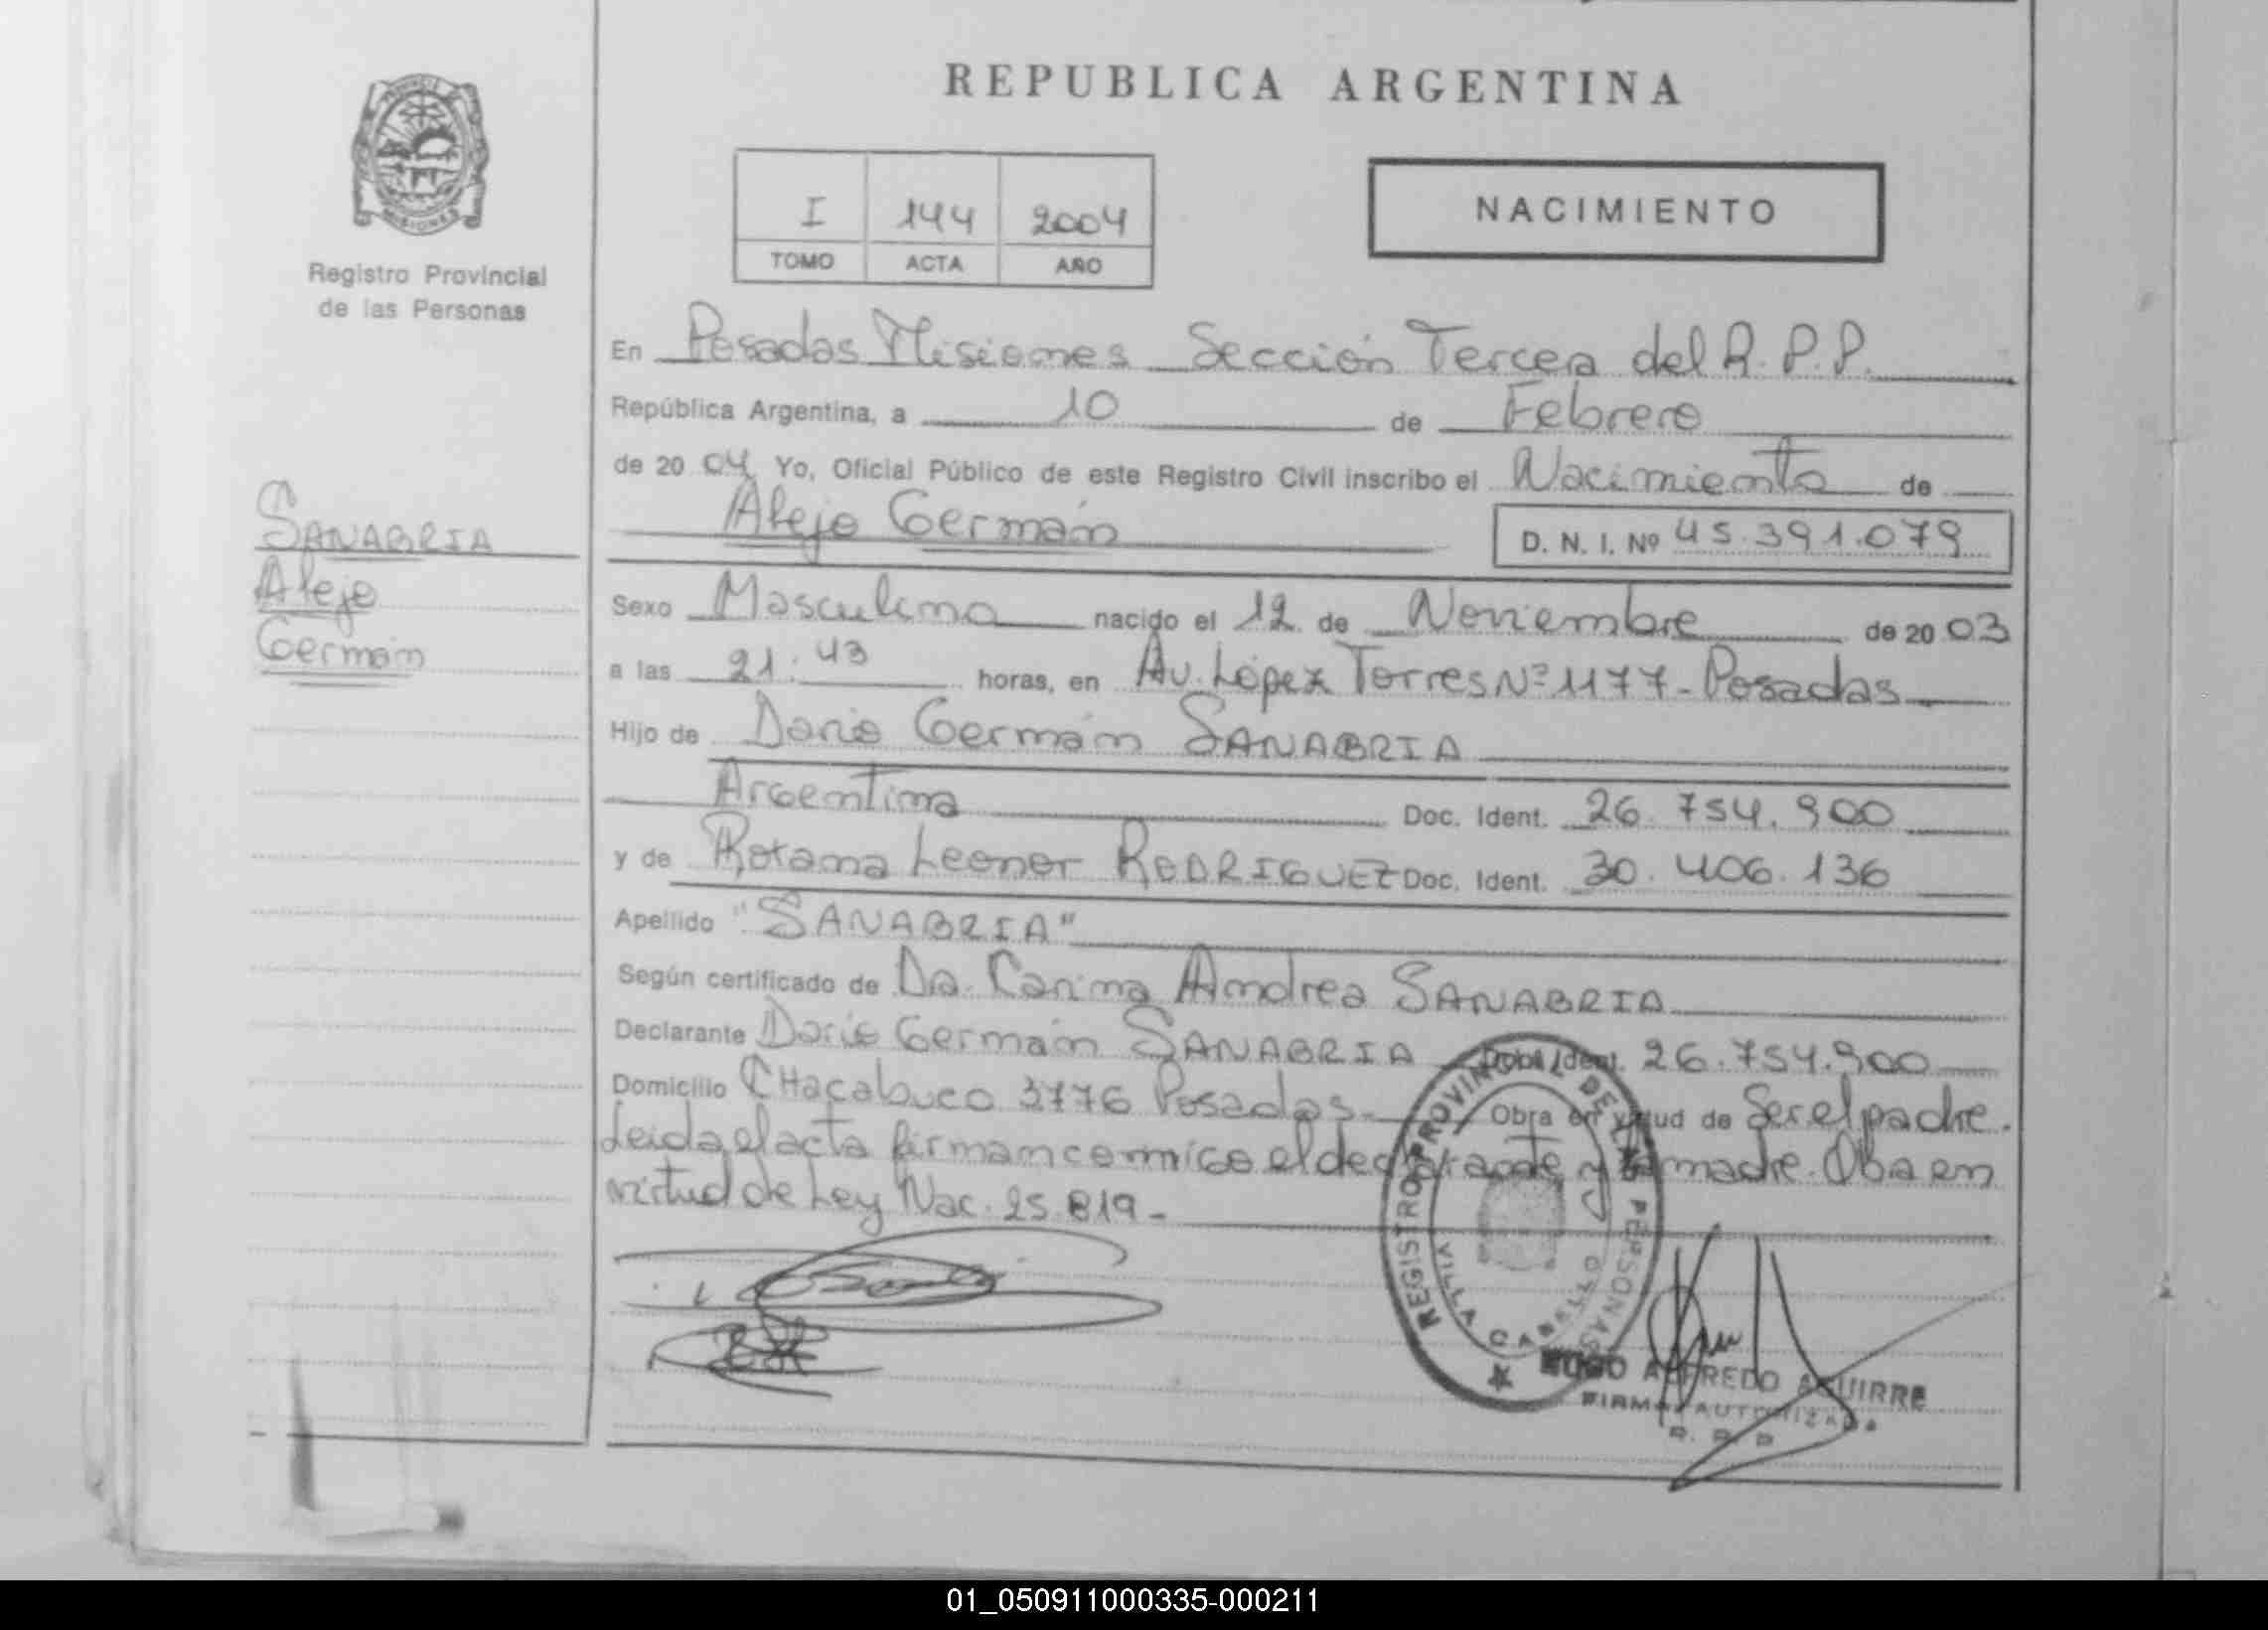 REPUBLICA ARGENTINA
MISIONES
Registro Provincial
de las Personas
I 144 2004
TOMO ACTA AÑO
NACIMIENTO
En Posadas Misiones Sección Tercera del R.P.P.
República Argentina, a 10 de Febrero
de 2004 Yo, Oficial Público de este Registro Civil inscribo el Nacimiento de
Alejo Germán D. N. I. Nº 45.391.079
SANABRIA
Alejo
Germán
Sexo Masculino nacido el 12 de Noviembre de 2003
a las 21:43 horas, en Av. López Torres Nº 1177 - Posadas
Hijo de Dario Germán SANABRIA
Argentina Doc. Ident. 26.754.900
y de Leonor RODRIGUEZ Doc. Ident. 30.406.136
Apellido "SANABRIA"
Según certificado de Dra. Carina Andrea SANABRIA
Declarante Dario Germán SANABRIA Doc. Ident. 26.754.900
Domicilio CHacabuco 3776 Posadas. Obra en virtud de Ser el padre.
Leida el acta firman conmigo el declarante y la madre. Obra en
virtud de Ley Nac. 25.819 -
REGISTRO PROVINCIAL DE LAS PERSONAS
VILLA CABELLO
HUGO ALFREDO AGUIRRE
FIRMA AUTORIZADA
R. P. P.
01_050911000335-000211